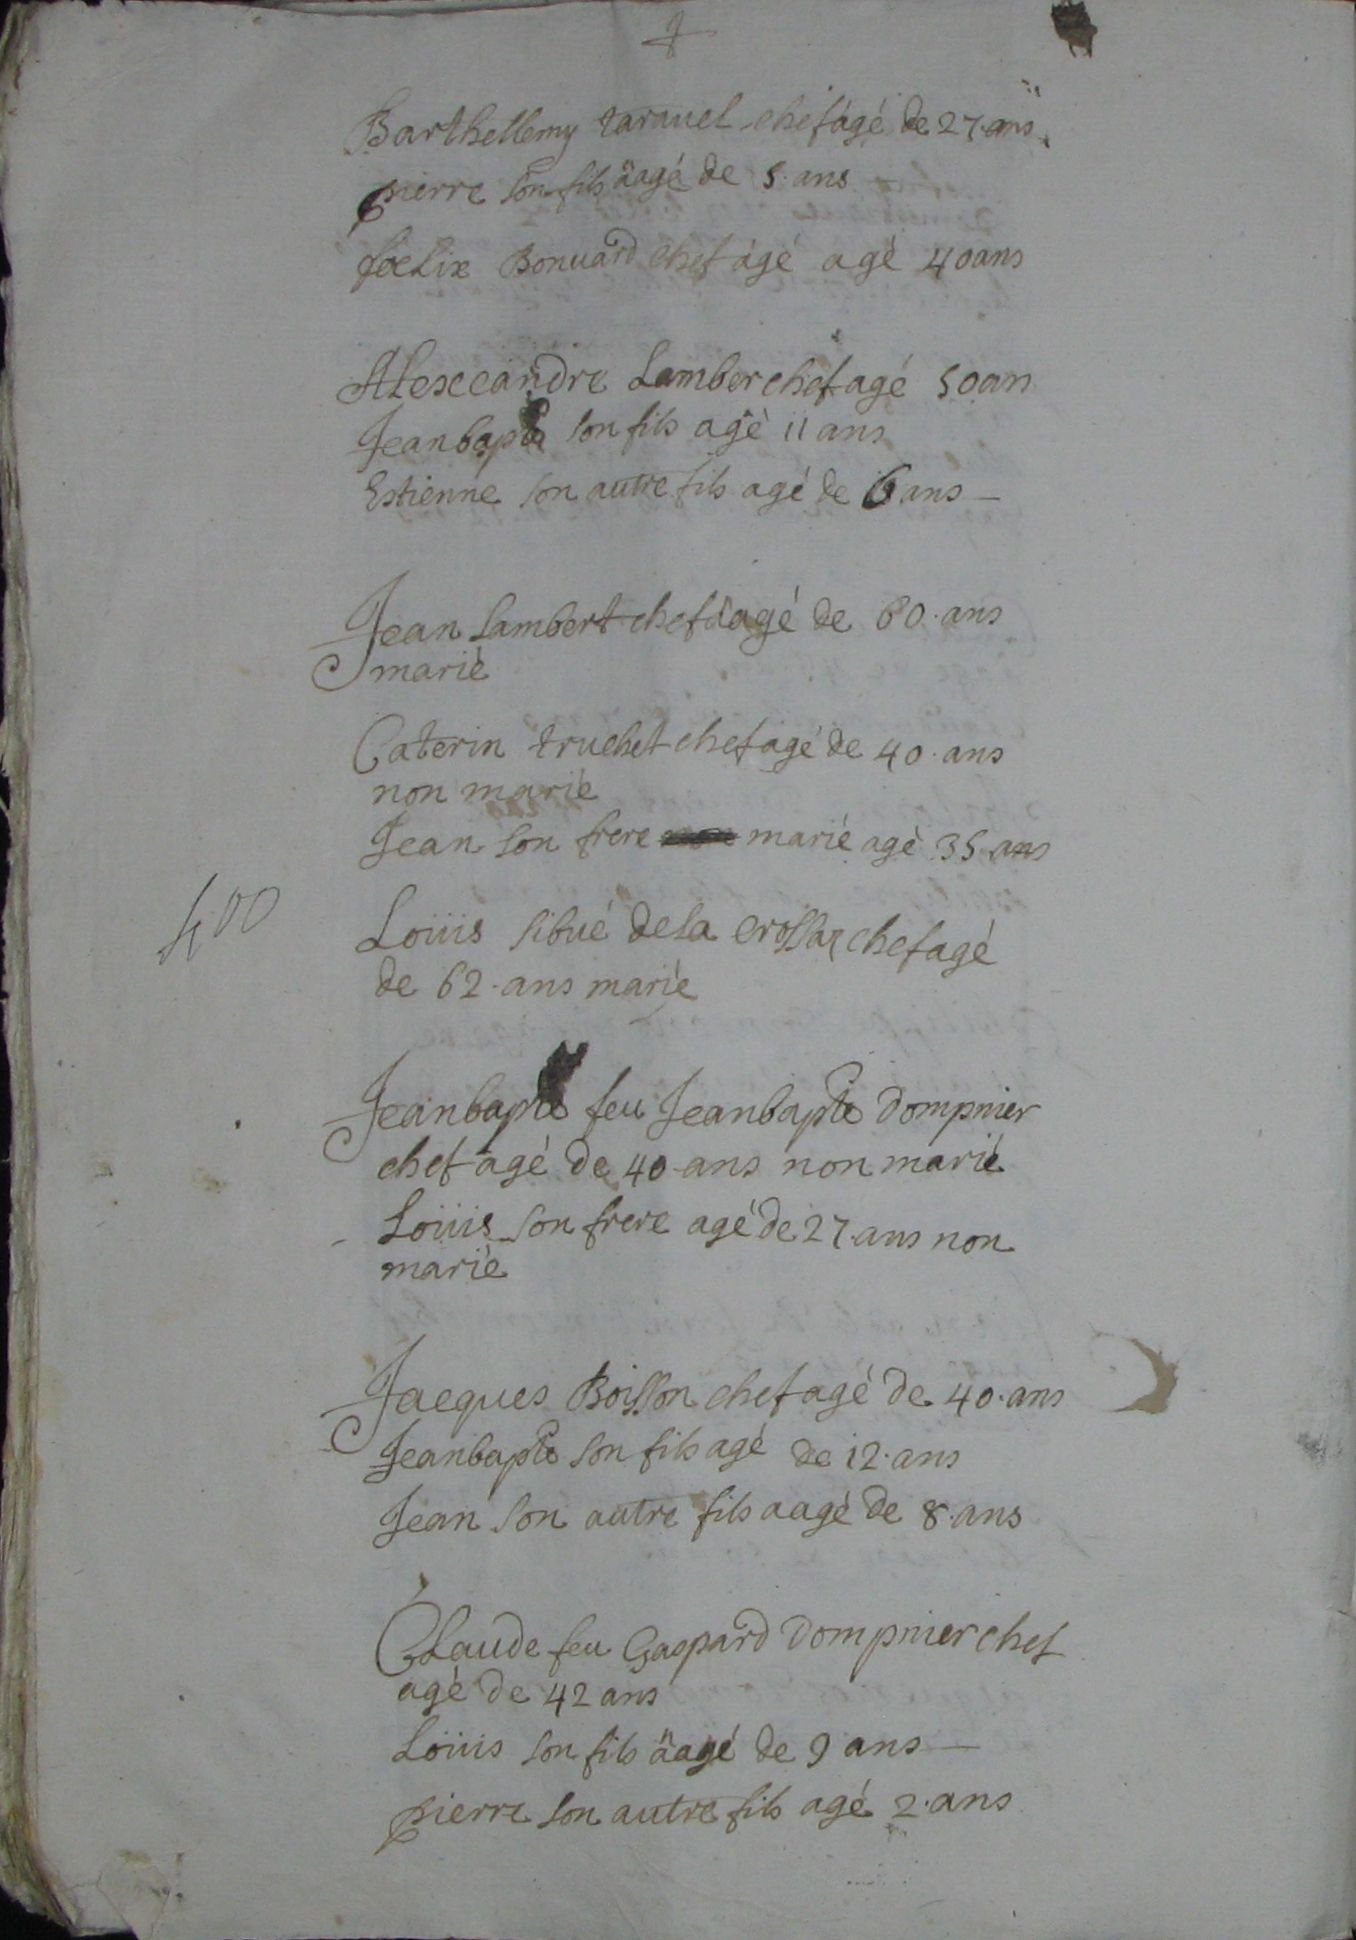 Barthellemy taravel chef âgé de 27 ans
pierre son fils äagé de 5 ans
foelix Bonuard chef âgé agé 40 ans
Alexcandre Lamber chef agé 50 an
Jeanbapte son fils agé 11 ans
Estienne son autre fils agé de 6 ans
Jean Lambert chef äagé de 60 ans
marié
Caterin truchet chef agé de 40 ans
non marié
Jean son frere marié agé 35 ans
400
Loüis sibué de la crossaz chef agé
de 62 ans marié
Jeanbapte feu Jeanbapte Dompnier
chef agé de 40 ans non marié
Loüis son frere agé de 27 ans non
marié
Jacques Boisson chef agé de 40 ans
Jeanbapte son fils agé de 12 ans
Jean son autre fils aagé de 8 ans
Claude feu Gaspard Dompnier chef
agé de 42 ans
Loüis son fils äagé de 9 ans
pierre son autre fils agé 2 ans